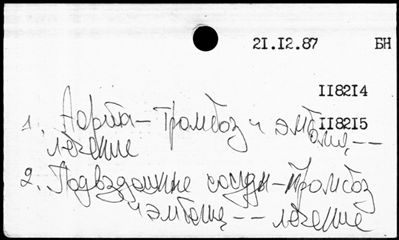 21.12.87 БН
118214
1. Аорта – Тромбоз и эмболия --
118215
лечение
2. Подвздошные сосуды – Тромбоз
и эмболия -- лечение